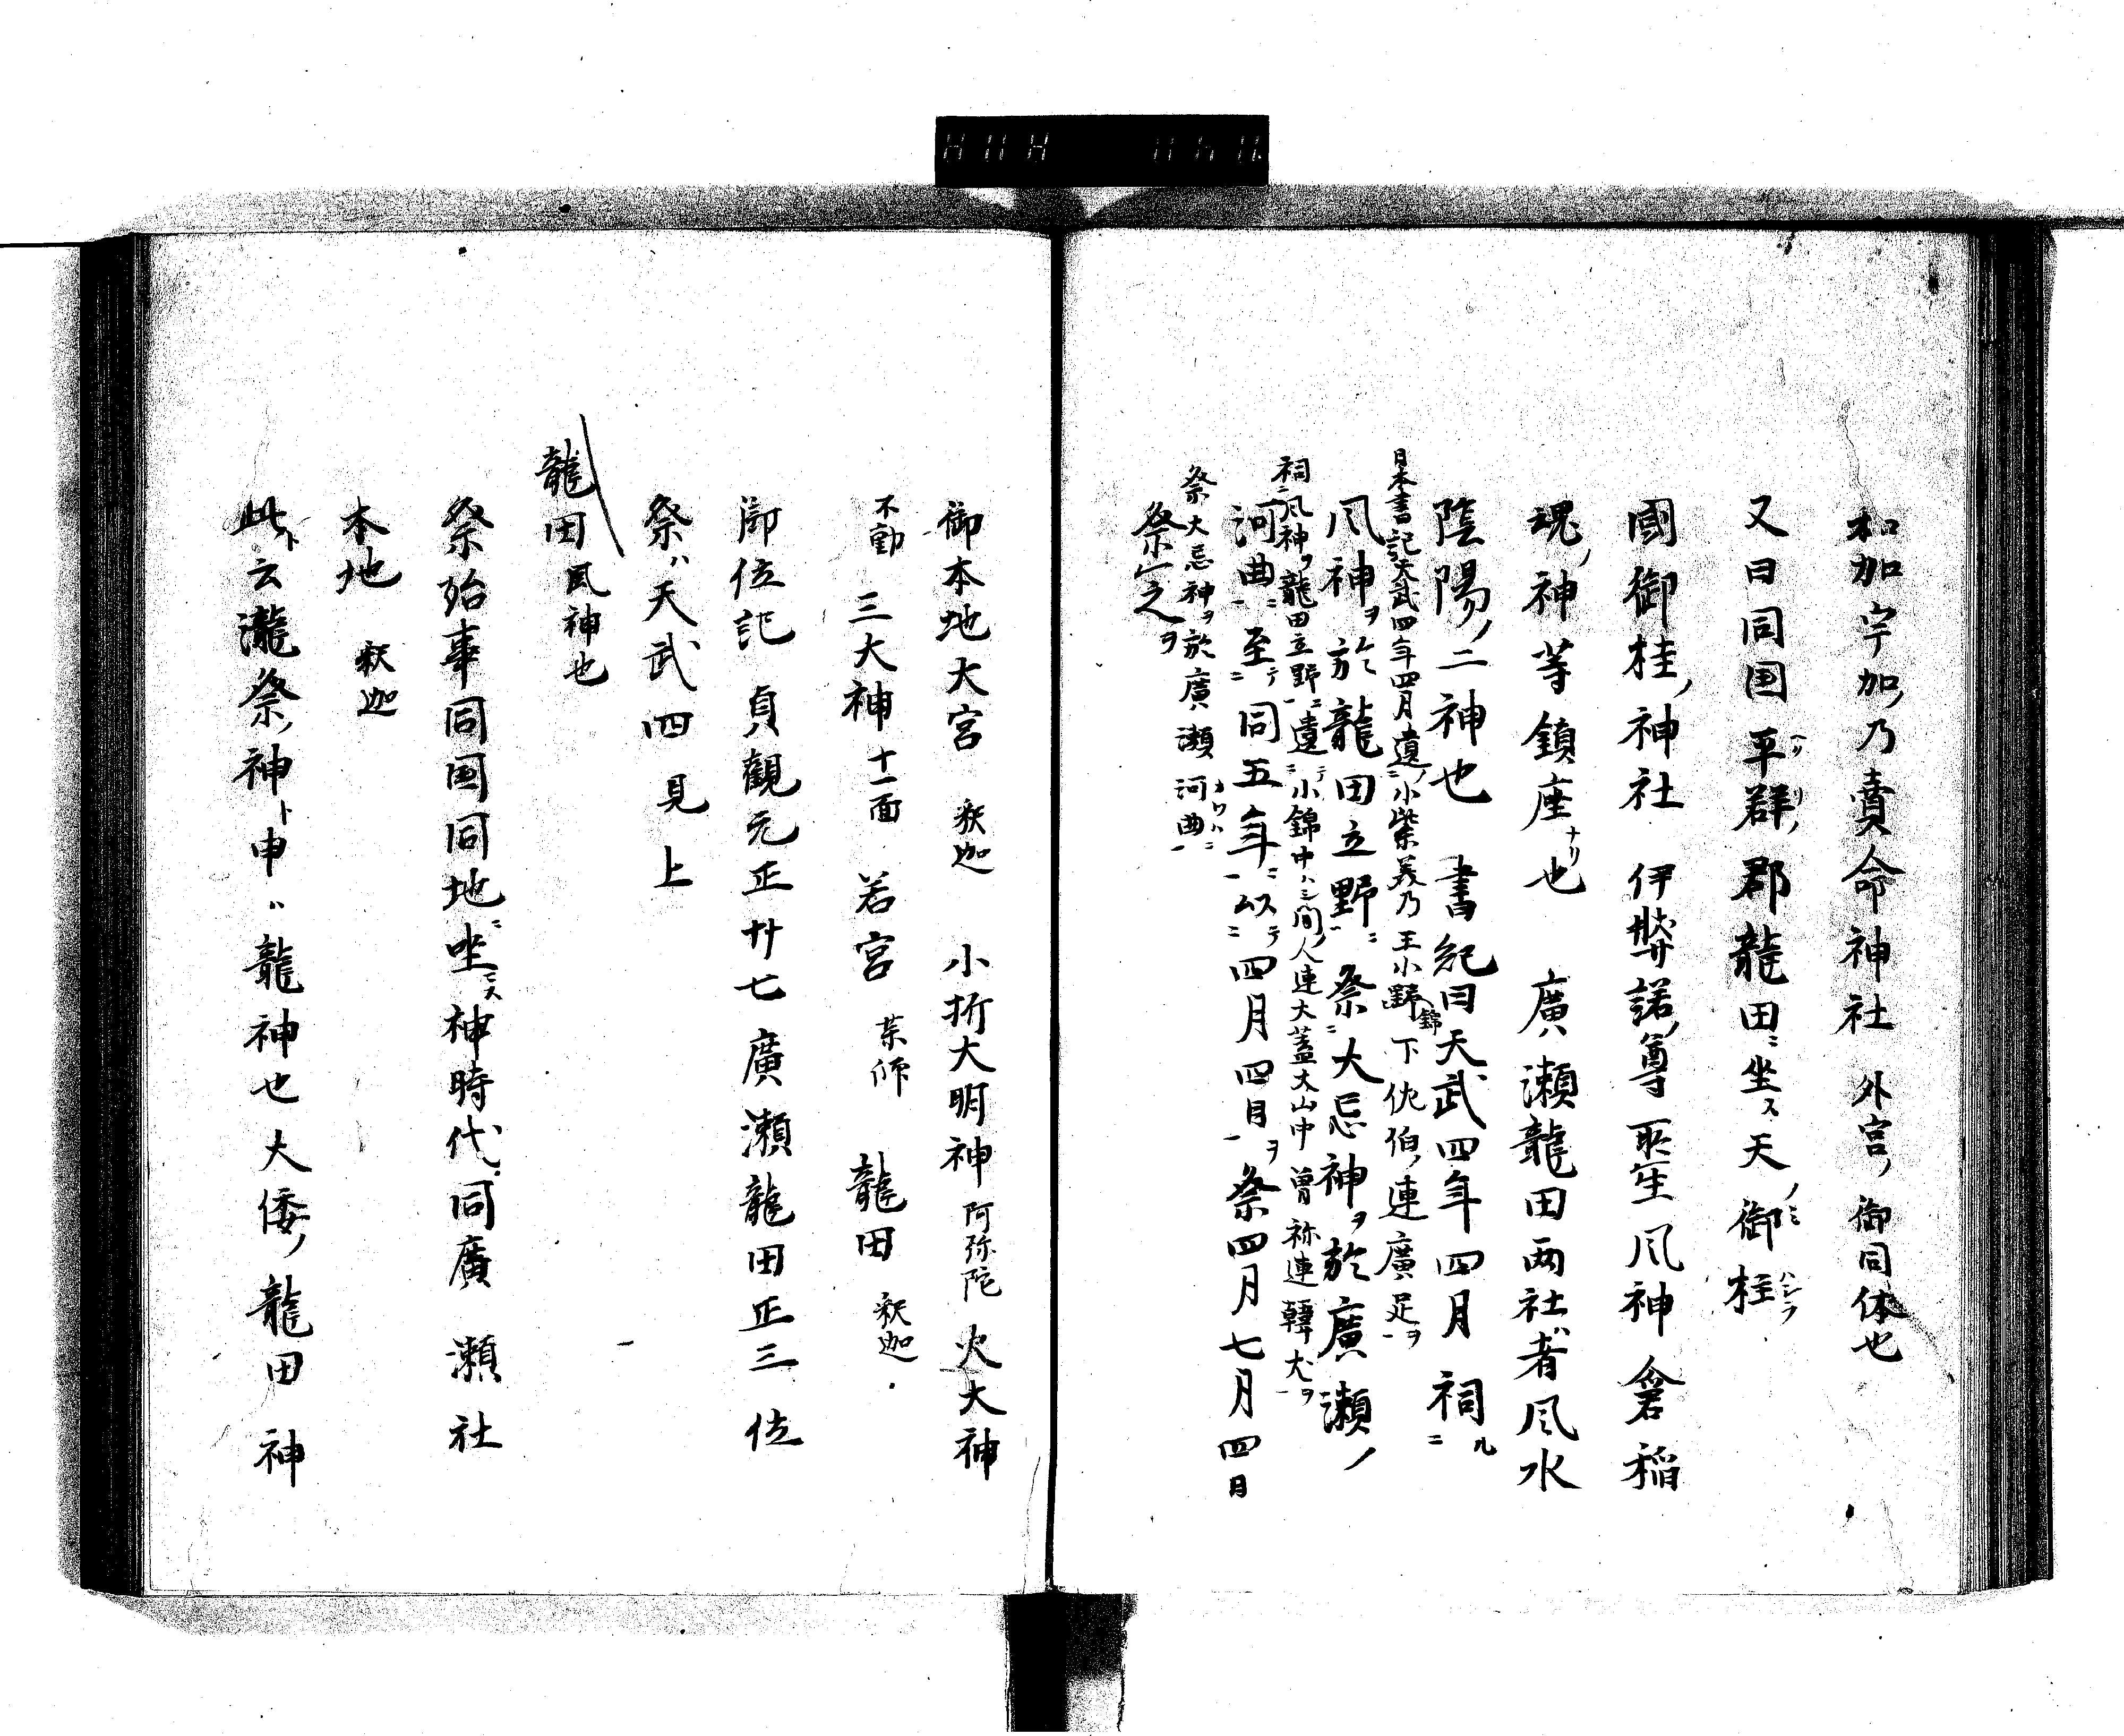 和加宇加ノ乃賣命神社 外宮ノ御同体也
又曰同国平群ノ郡龍田ニ坐ス天ノ御柱
國御柱ノ神社 伊弉諾ノ尊所生風神倉稲
魂ノ神等鎮座ナリ也 廣瀬龍田両社者風水
陰陽ノ二神也 書紀曰天武四年四月祠ル
日本書記天武四年四月遣小柴美乃王小野錦下佐伯ノ連廣足ヲ
風神ヲ於龍田立野ニ祭大忌神ヲ於廣瀬ノ
祠ニ風神ヲ龍田立野ニ遣ニテ小錦中ハシ間ノ人連大蓋大山中曽祢連韓犬ヲ
河曲ニ至ニテ同五年ニ以ニテ四月四日ヲ祭四月七月四日
祭大忌神ヲ於廣瀬河曲
祭之ヲ
御本地大宮 釈迦 小折大明神 阿弥陀 火大神
不動 三大神 十一面 若宮 薬師 龍田 釈迦
御位記 貞観元正廿七廣瀬龍田正三位
祭ハ天武四見上
龍田 風神也
祭始事同国同地ニ坐ス神時代同廣瀬社
本地 釈迦
此ト云瀧祭ノ神ト申ハ龍神也大倭ノ龍田神